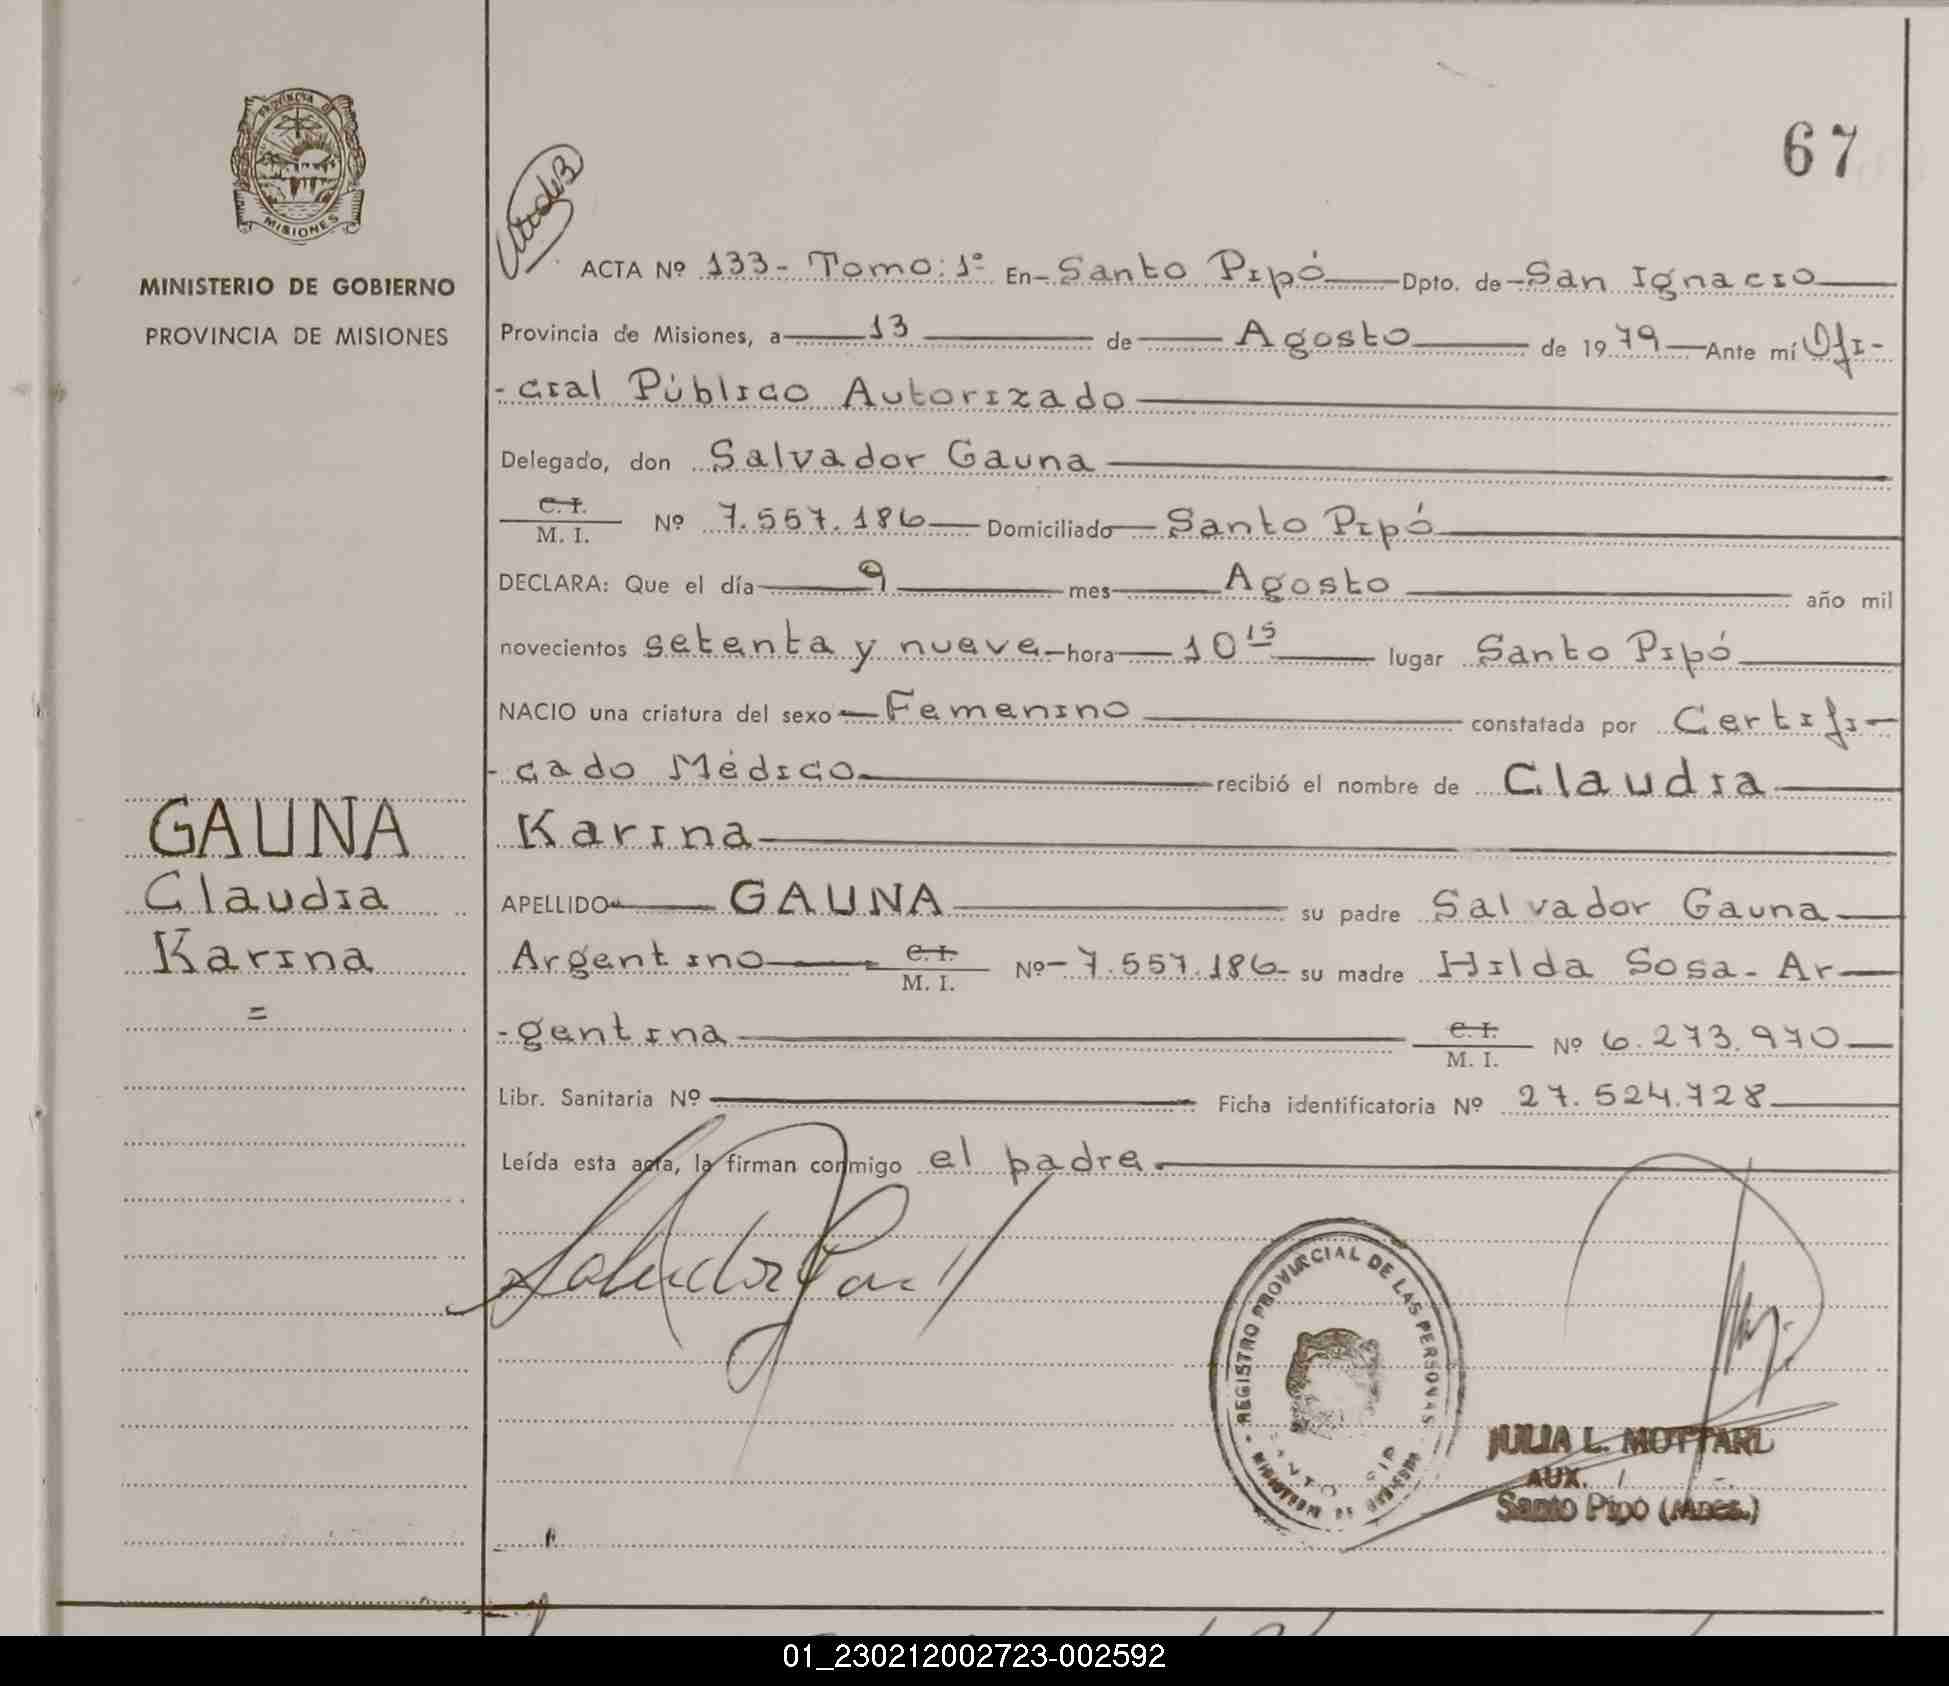 67
PROVINCIA DE
MISIONES
MINISTERIO DE GOBIERNO
PROVINCIA DE MISIONES
ACTA Nº 133- Tomo: 1º En Santo Pipó Dpto. de San Ignacio
Provincia de Misiones, a 13 de Agosto de 1979 Ante mí Ofi-
-cial Público Autorizado
Delegado, don Salvador Gauna
C. I.
M. I. Nº 7.557.186 Domiciliado Santo Pipó
DECLARA: Que el día 9 mes Agosto año mil
novecientos setenta y nueve hora 10 15 lugar Santo Pipó
NACIO una criatura del sexo Femenino constatada por Certifi-
-cado Médico recibió el nombre de Claudia
Karina
APELLIDO GAUNA su padre Salvador Gauna
Argentino C. I. M. I. Nº 7.557.186 su madre Hilda Sosa - Ar-
-gentina C. I. M. I. Nº 6.273.970
Libr. Sanitaria Nº Ficha identificatoria Nº 27.524.728
Leída esta acta, la firman conmigo el padre
GAUNA
Claudia
Karina
=
REGISTRO PROVINCIAL DE LAS PERSONAS
JULIA L.
AUX.
Santo Pipó (Mnes.)
01_230212002723-002592